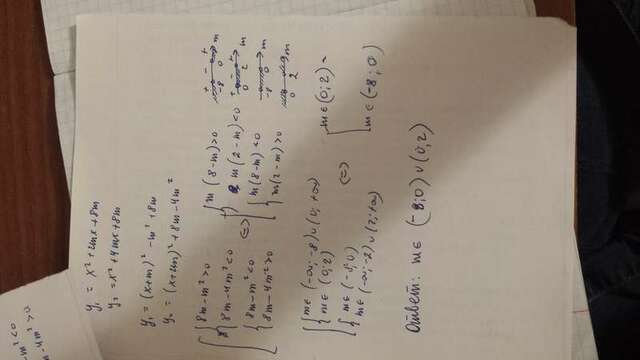 y₁ = x² + 2mx + 8m
y₂ = x² + 4mx + 8m
y₁ = (x+m)² - m² + 8m
y₂ = (x+2m)² + 8m - 4m²
8m - m² > 0
8m - 4m² < 0
8m - m² < 0
8m - 4m² > 0
<=>
m(8-m) > 0
m(2-m) < 0
m(8-m) < 0
m(2-m) > 0
+ - + m
-8 0
m
0 2
m
-8 0
m
0 2
m ∈ (-∞; -8) ∪ (0; +∞)
m ∈ (0; 2)
m ∈ (-8; 0)
m ∈ (-∞; -2) ∪ (2; +∞)
<=>
m ∈ (0; 2)
m ∈ (-8; 0)
Ответ: m ∈ (-8; 0) ∪ (0; 2)